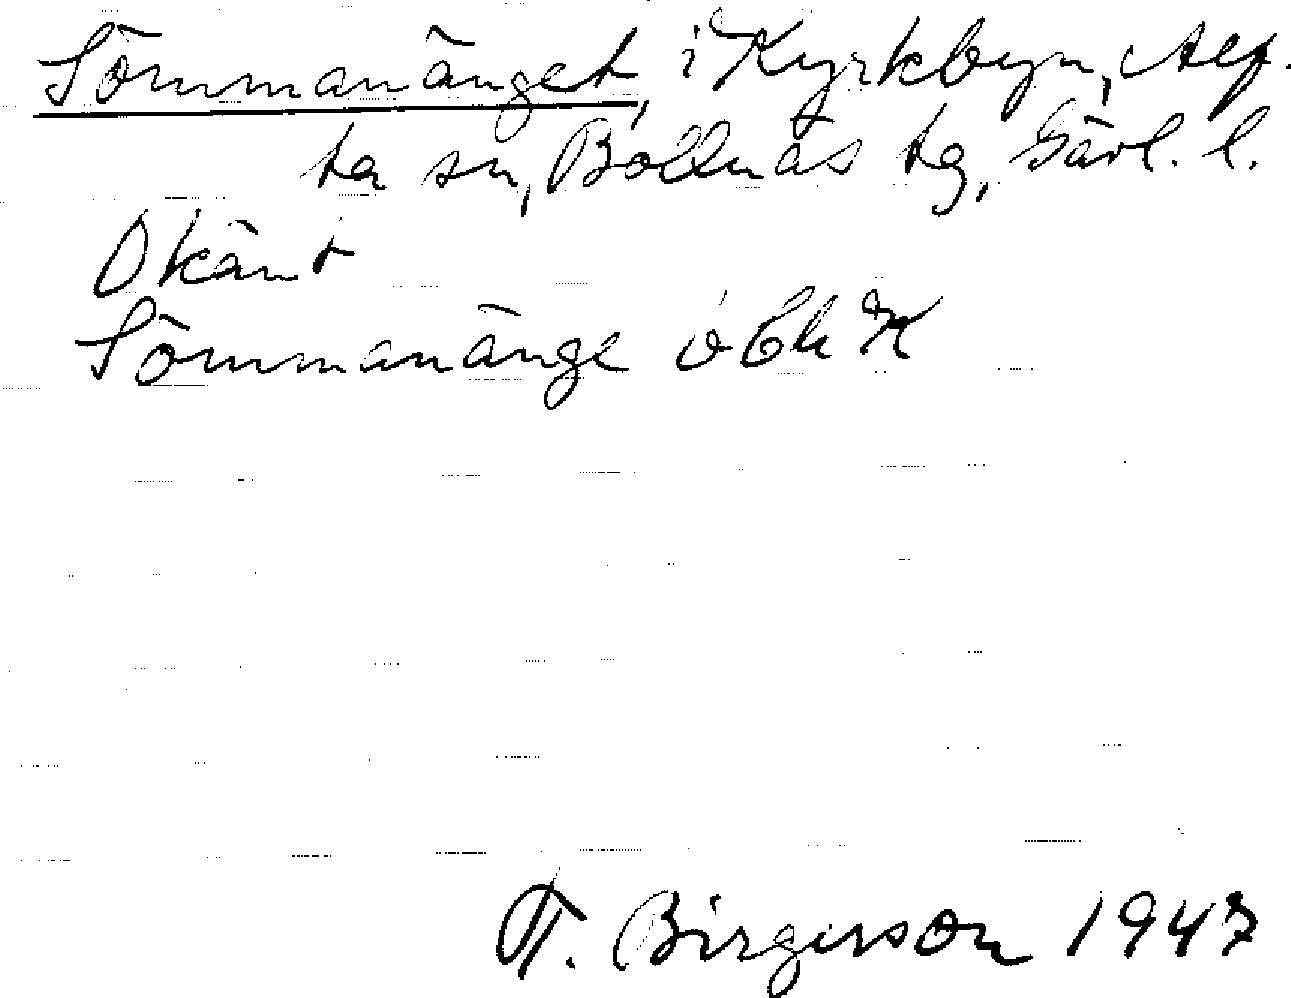 Sömmanänget, i Kyrkbyn, Alf-
ta sn, Bollnäs tg, Gävl. l.
Okänt
Sömmanänge
T. Birgerson 1947